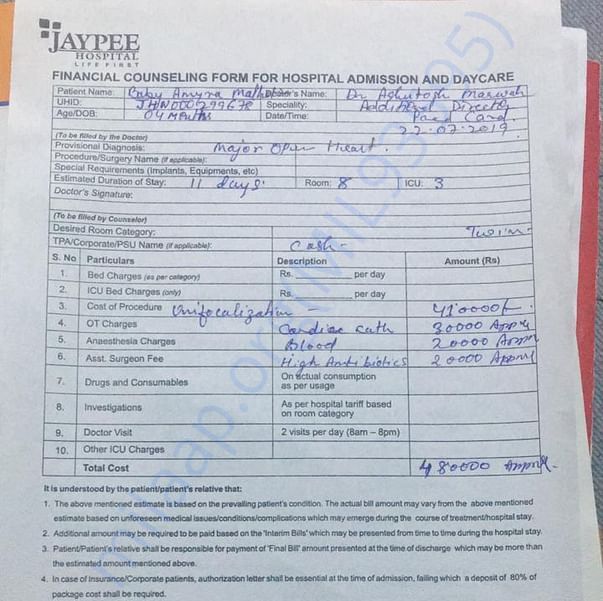 JAYPEE
HOSPITAL
LIFE FIRST
FINANCIAL COUNSELING FORM FOR HOSPITAL ADMISSION AND DAYCARE
Patient Name: Baby Amyra Doctor's Name: Dr Ashutosh Marwah
UHID: JHN000299678 Speciality: Additional Director
Age/DOB: 04 Months Date/Time: Paed Card.
22-07-2019
(To be filled by the Doctor)
Provisional Diagnosis: Major Open Heart.
Procedure/Surgery Name (if applicable):
Special Requirements (Implants, Equipments, etc)
Estimated Duration of Stay: 11 days. Room: 8 ICU: 3
Doctor's Signature:
(To be filled by Counselor)
Desired Room Category:
TPA/Corporate/PSU Name (if applicable): Cash-
S. No Particulars Description Amount (Rs)
1. Bed Charges (as per category) Rs. per day
2. ICU Bed Charges (only) Rs. per day
3. Cost of Procedure Unifocalization - 410000/-
4. OT Charges Cardiac cath 30000 Appx
5. Anaesthesia Charges Blood 20000 Appx
6. Asst. Surgeon Fee High Antibiotics 20000 Appx
7. Drugs and Consumables On actual consumption as per usage
8. Investigations As per hospital tariff based on room category
9. Doctor Visit 2 visits per day (8am – 8pm)
10. Other ICU Charges
Total Cost 480000 Appx.
It is understood by the patient/patient's relative that:
1. The above mentioned estimate is based on the prevailing patient's condition. The actual bill amount may vary from the above mentioned
estimate based on unforeseen medical issues/conditions/complications which may emerge during the course of treatment/hospital stay.
2. Additional amount may be required to be paid based on the 'Interim Bills' which may be presented from time to time during the hospital stay.
3. Patient/Patient's relative shall be responsible for payment of 'Final Bill' amount presented at the time of discharge which may be more than
the estimated amount mentioned above.
4. In case of Insurance/Corporate patients, authorization letter shall be essential at the time of admission, failing which a deposit of 80% of
package cost shall be required.